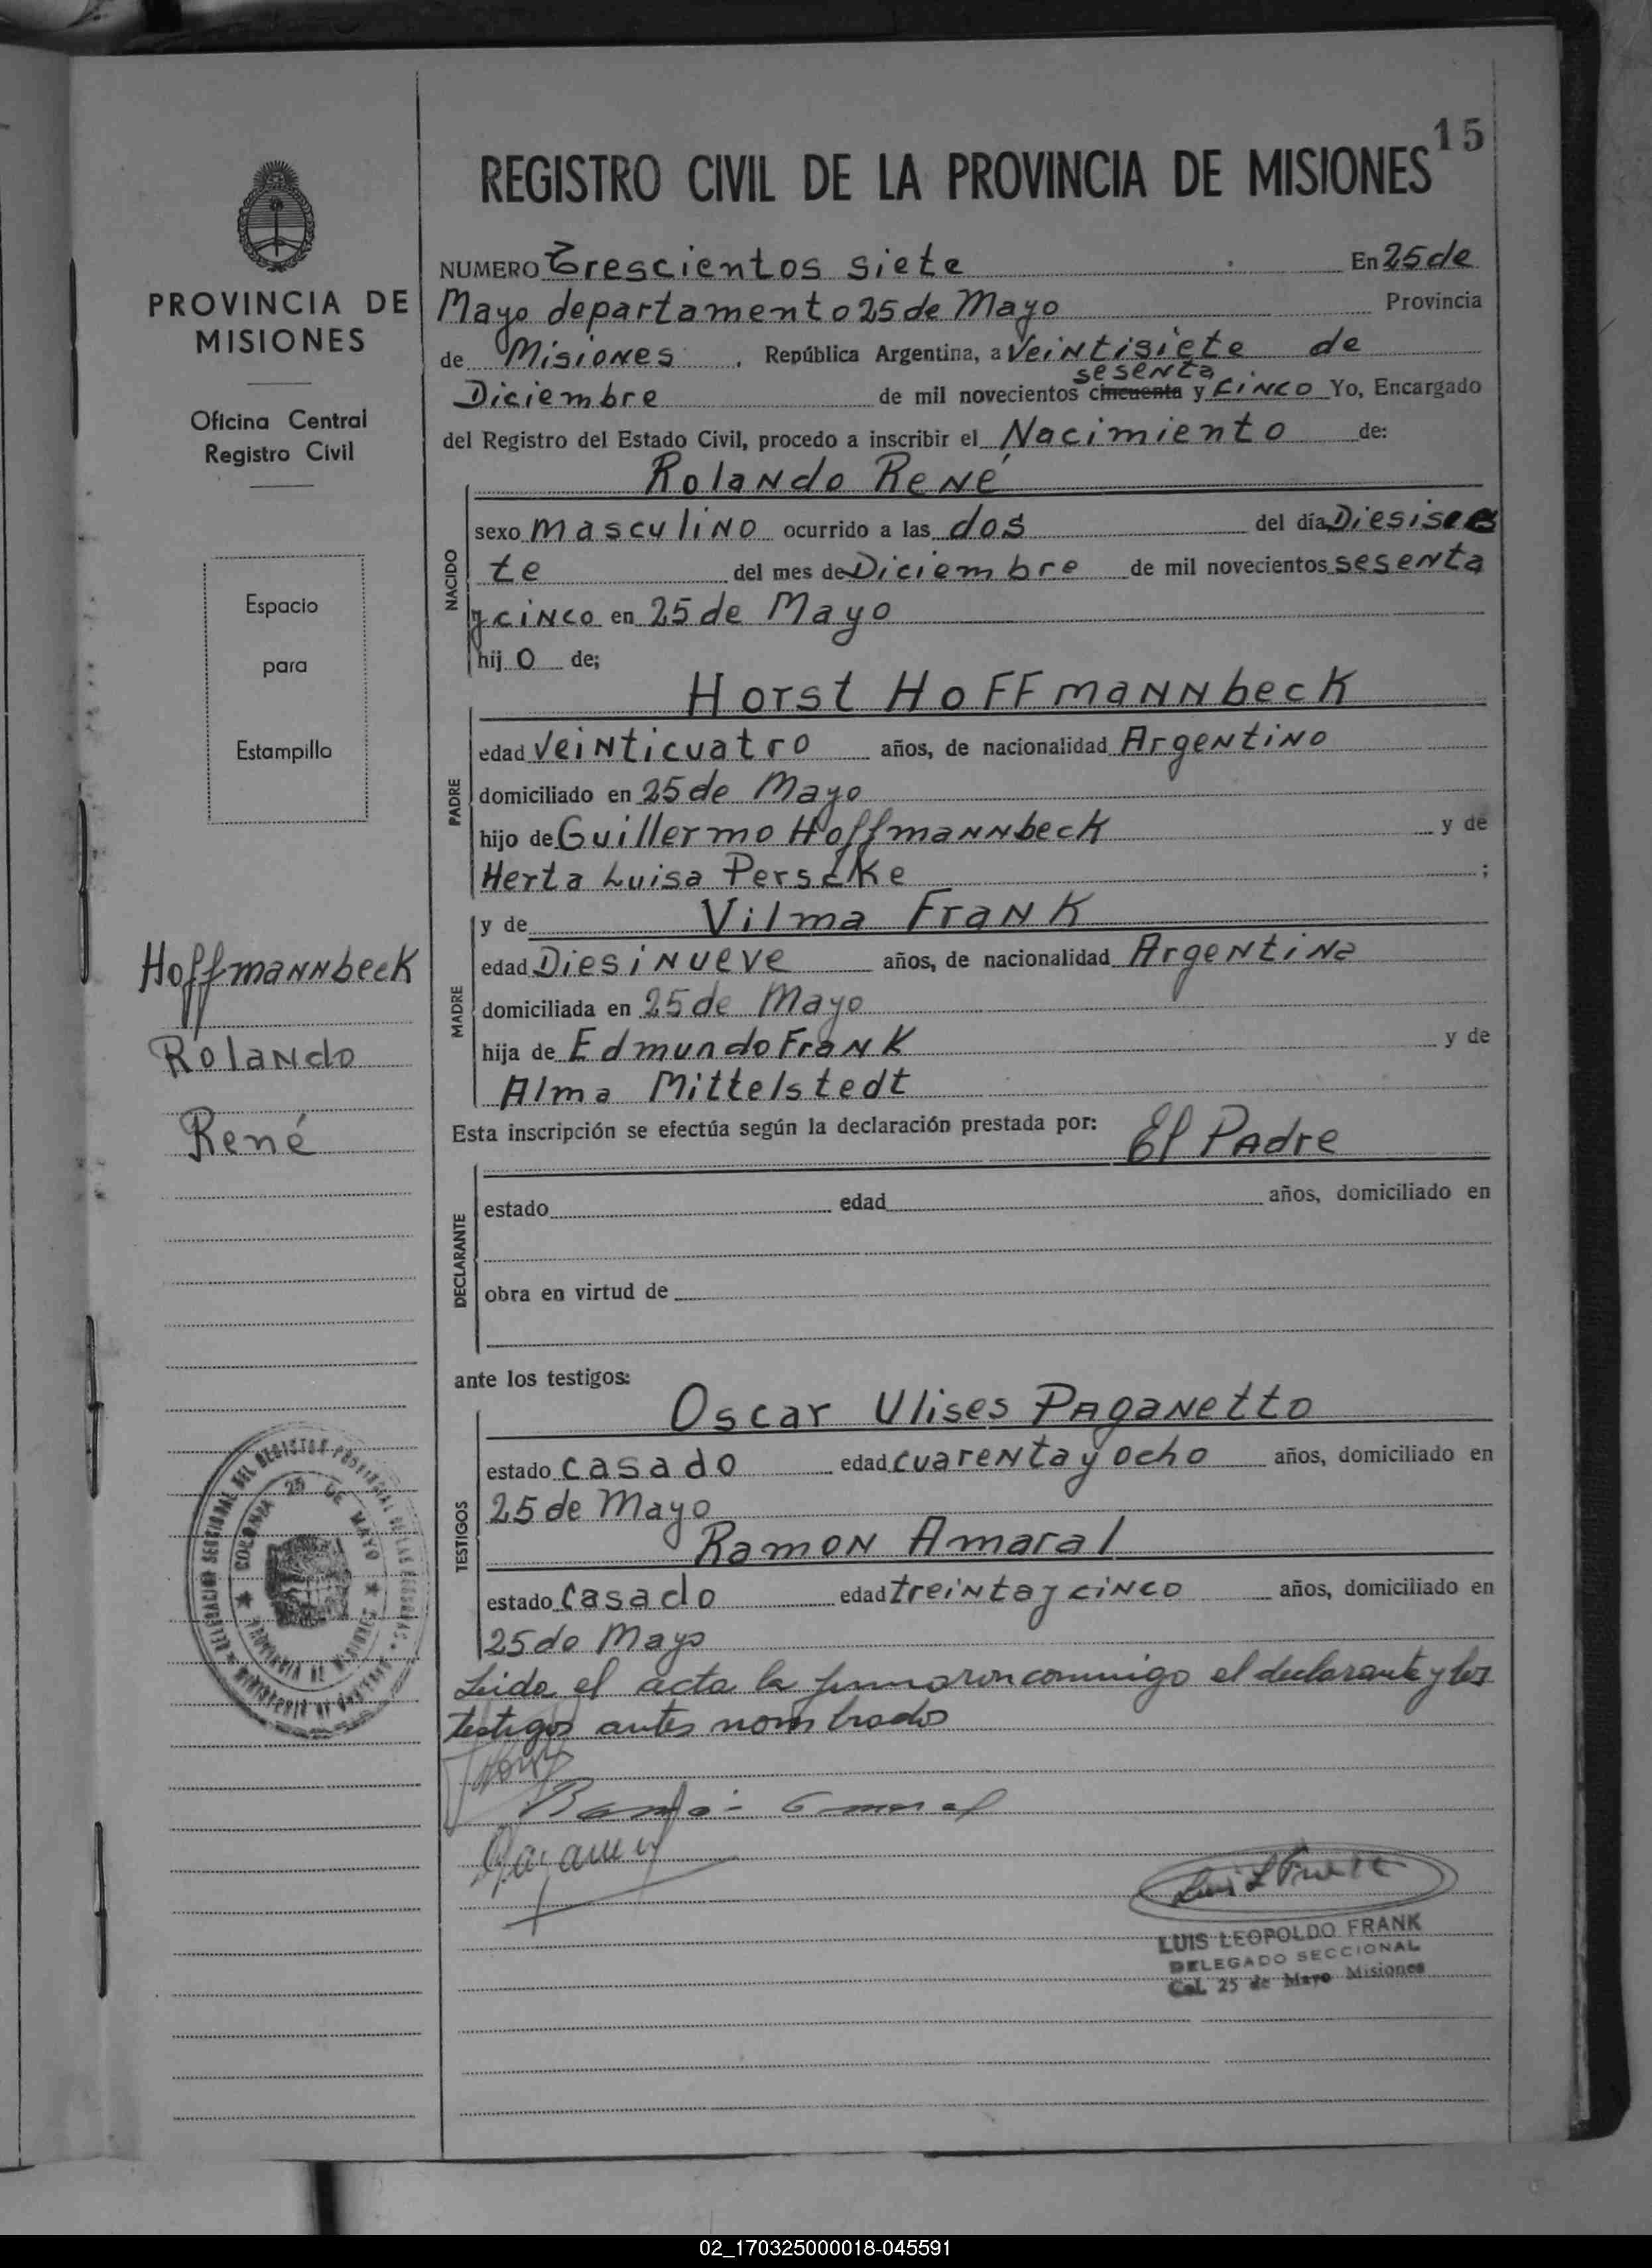 15
REGISTRO CIVIL DE LA PROVINCIA DE MISIONES
PROVINCIA DE
MISIONES
Oficina Central
Registro Civil
Espacio
para
Estampilla
Hoffmannbeck
Rolando
René
NUMERO Trescientos siete En 25 de
Mayo departamento 25 de Mayo Provincia
de Misiones, República Argentina, a Veintisiete de
sesenta
Diciembre de mil novecientos cincuenta y cinco Yo, Encargado
del Registro del Estado Civil, procedo a inscribir el Nacimiento de:
Rolando René
NACIDO
sexo masculino ocurrido a las dos del día Diesisee
te del mes de Diciembre de mil novecientos sesenta
y cinco en 25 de Mayo
hij o de;
Horst Hoffmannbeck
PADRE
edad Veinticuatro años, de nacionalidad Argentino
domiciliado en 25 de Mayo
hijo de Guillermo Hoffmannbeck y de
Herta Luisa Perscke ;
y de Vilma Frank
MADRE
edad Diesinueve años, de nacionalidad Argentina
domiciliada en 25 de Mayo
hija de Edmundo Frank y de
Alma Mittelstedt
Esta inscripción se efectúa según la declaración prestada por: El Padre
DECLARANTE
estado edad años, domiciliado en
obra en virtud de
ante los testigos:
Oscar Ulises Paganetto
TESTIGOS
estado casado edad cuarenta y ocho años, domiciliado en
25 de Mayo
Ramon Amaral
estado casado edad treinta y cinco años, domiciliado en
25 de Mayo
Leida el acta la firmaron conmigo el declarante y los
testigos antes nombrados
COLONIA 25 DE MAYO
LUIS LEOPOLDO FRANK
DELEGADO SECCIONAL
Col. 25 de Mayo Misiones
02_170325000018-045591